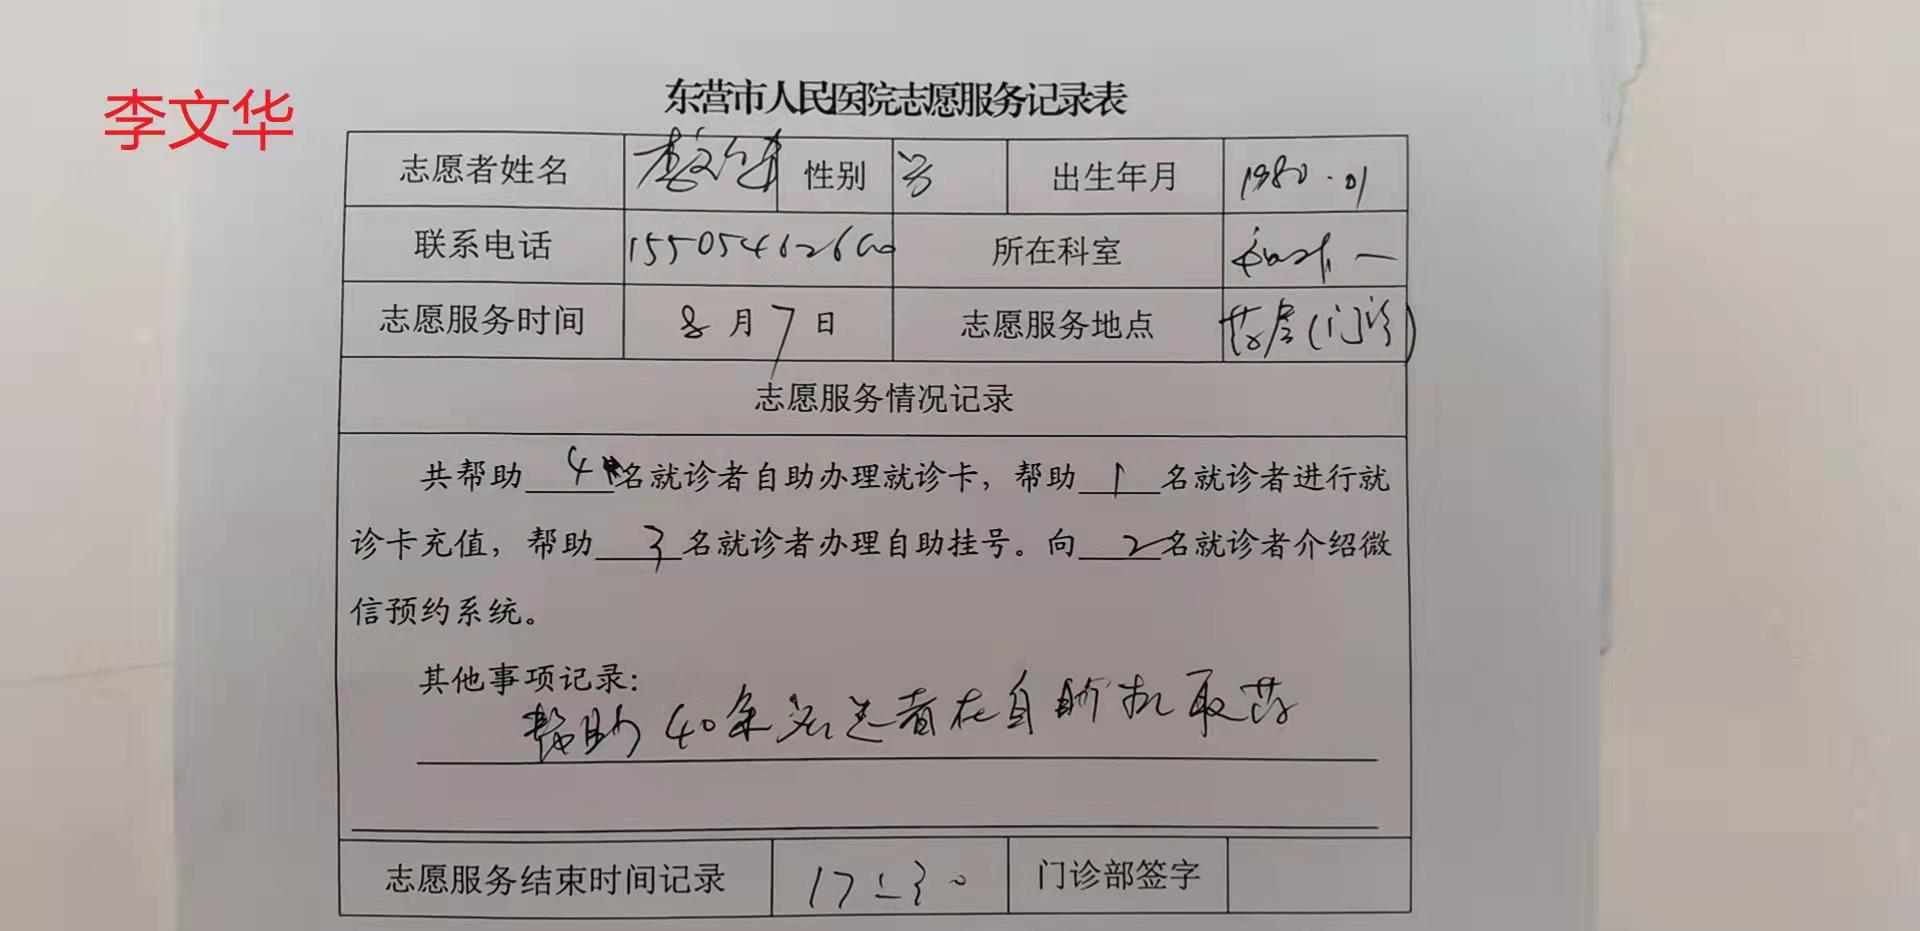 李文华
东营市人民医院志愿服务记录表
志愿者姓名 李文华 性别 男 出生年月 1980.01
联系电话 所在科室 一
志愿服务时间 8月7日 志愿服务地点 药房(门诊)
志愿服务情况记录
共帮助 4 名就诊者自助办理就诊卡，帮助 1 名就诊者进行就
诊卡充值，帮助 3 名就诊者办理自助挂号。向 2 名就诊者介绍微
信预约系统。
其他事项记录:
帮助40余名患者在自助机取药
志愿服务结束时间记录 17:30 门诊部签字